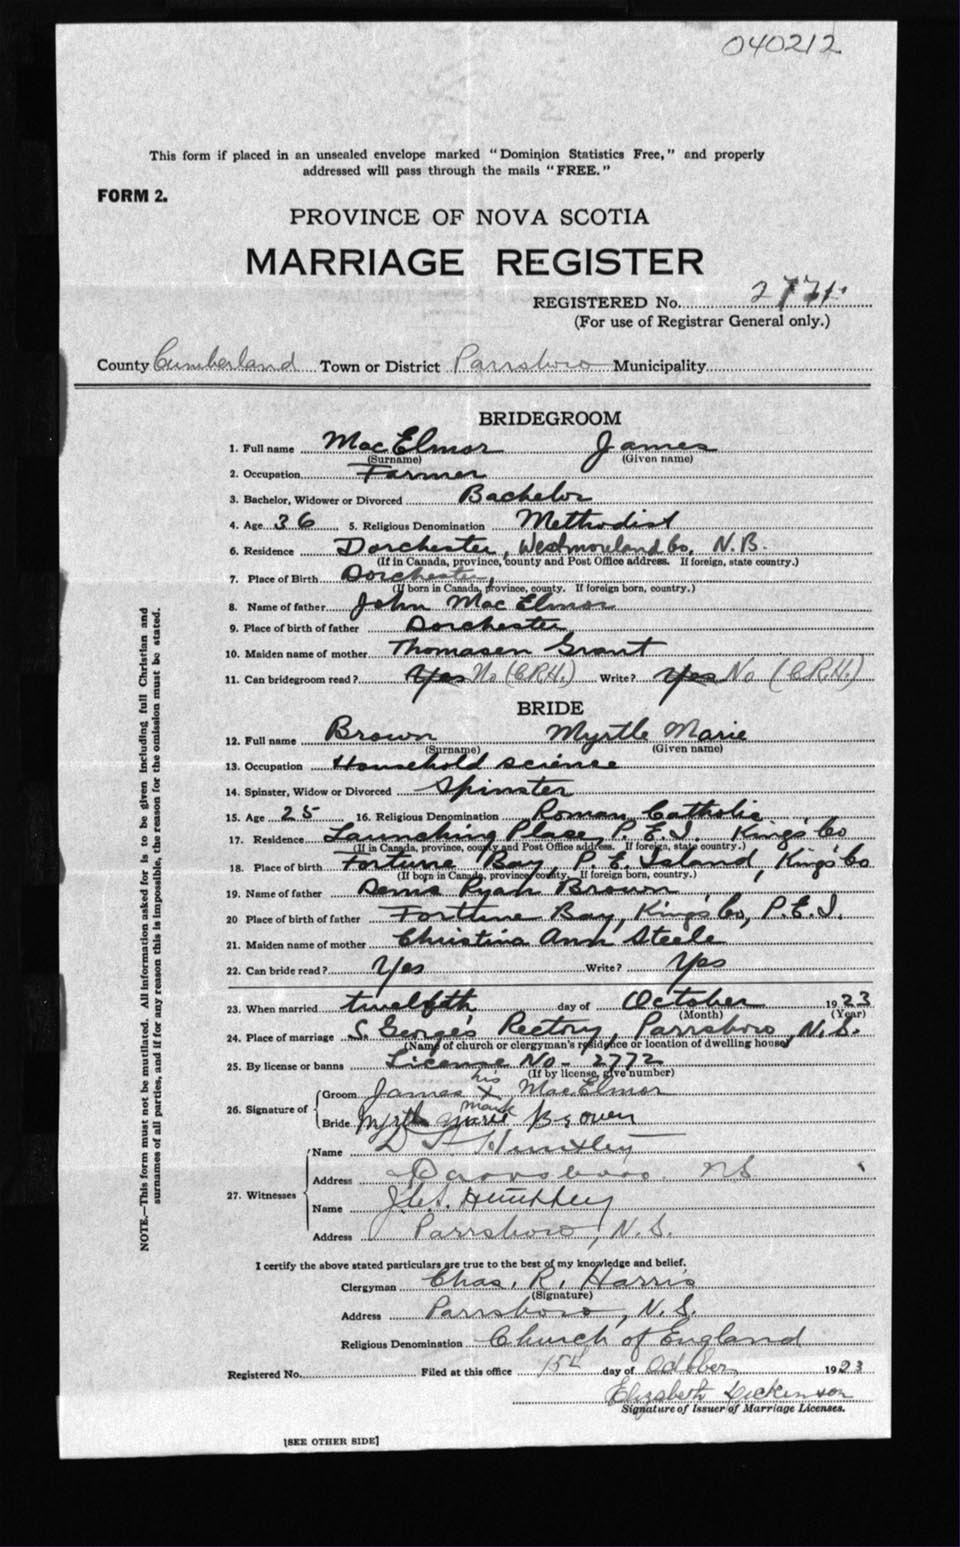 040212
This form if placed in an unsealed envelope marked "Dominion Statistics Free," and properly
addressed will pass through the mails "FREE."
FORM 2.
PROVINCE OF NOVA SCOTIA
MARRIAGE REGISTER
REGISTERED No.
(For use of Registrar General only.)
County Cumberland Town or District Parrsboro Municipality
BRIDEGROOM
1. Full name MacElmor James
(Surname) (Given name)
2. Occupation Farmer
3. Bachelor, Widower or Divorced Bachelor
4. Age 36 5. Religious Denomination Methodist
6. Residence Dorchester, Westmoreland Co, N.B.
(If in Canada, province, county and Post Office address. If foreign, state country.)
7. Place of Birth Dorchester,
(If born in Canada, province, county. If foreign born, country.)
8. Name of father John MacElmor
9. Place of birth of father Dorchester
10. Maiden name of mother Thomasen Grant
11. Can bridegroom read? Yes No (C.R.H.) Write? Yes No (C.R.H.)
BRIDE
12. Full name Brown Myrtle Marie
(Surname) (Given name)
13. Occupation Household science
14. Spinster, Widow or Divorced Spinster
15. Age 25 16. Religious Denomination Roman Catholic
17. Residence Launching Place, P.E.I. King's Co
(If in Canada, province, county and Post Office address. If foreign, state country.)
18. Place of birth Fortune Bay, P.E. Island, King's Co
(If born in Canada, province, county. If foreign born, country.)
19. Name of father Ryan Brown
20 Place of birth of father Fortune Bay, King's Co, P.E.I.
21. Maiden name of mother Christina Ann Steele
22. Can bride read? Yes Write? Yes
23. When married twelfth day of October 1923
(Month) (Year)
24. Place of marriage S. George's Rectory, Parrsboro, N.S.
(Name of church or clergyman's residence or location of dwelling house)
25. By license or banns License No - 2772
(If by license, give number)
26. Signature of Groom James his X mark MacElmor
Bride Myrtle Marie Brown
27. Witnesses
Name Huntley
Address Parrsboro NS
Name Humphrey
Address Parrsboro, N.S.
I certify the above stated particulars are true to the best of my knowledge and belief.
Clergyman Chas. R. Harris
(Signature)
Address Parrsboro, N.S.
Religious Denomination Church of England
Registered No. Filed at this office 15th day of October 1923
Elizabeth Dickinson
Signature of Issuer of Marriage Licenses.
[SEE OTHER SIDE]
NOTE.—This form must not be mutilated. All information asked for is to be given including full Christian and
surnames of all parties, and if for any reason this is impossible, the reason for the omission must be stated.